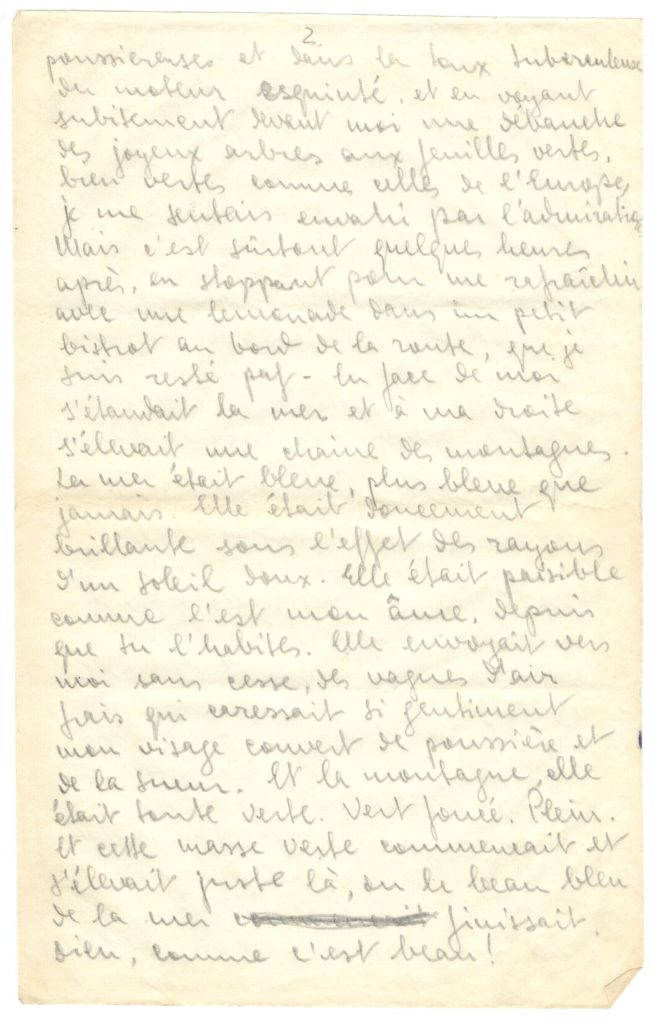 2
poussiereuses et dans la toux tuberculeuse
du moteur esquinté, et en voyant
subitement devant moi une débauche
des joyeux arbres aux feuilles vertes,
bien vertes comme celles de l'Europe,
je me sentais envahi par l'admiration
Mais c'est sûrtout quelques heures
après, en stoppant pour me rafraîchir
avec une lemonade dans un petit
bistrot au bord de la route, que je
suis resté paf - En face de moi
s'étandait la mer et à ma droite
s'élevait une chaine des montagnes.
La mer était bleue, plus bleue que
jamais. Elle était doucement
brillante sous l'effet des rayons
d'un soleil doux. Elle était paisible
comme l'est mon âme, depuis
que tu l'habites. Elle envoyait vers
moi sans cesse, des vagues d'air
frais qui caressait si gentiment
mon visage couvert de poussière et
de la sueur. Et la montagne, elle
était toute verte. Vert foncé. Plein.
Et cette masse verte commencait et
s'élevait juste là, ou le beau bleu
de la mer commencait finissait.
Dieu, comme c'est beau!